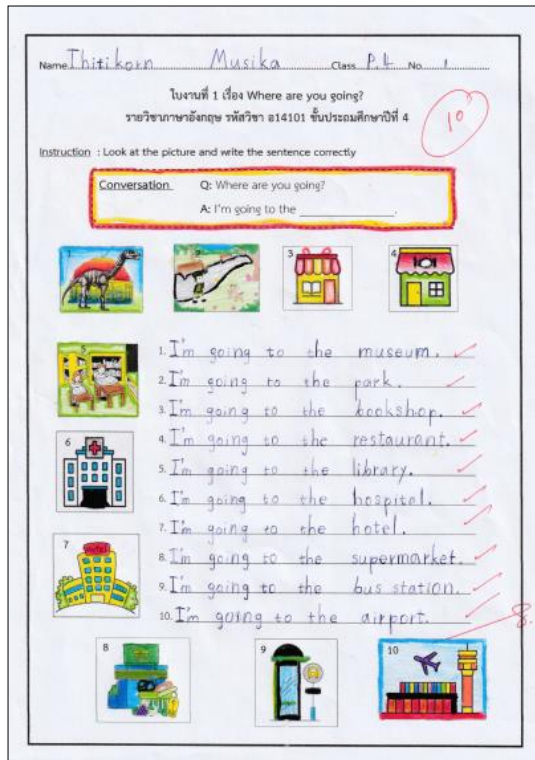 Name Thitikorn Musika Class P.4 No. 1
ใบงานที่ 1 เรื่อง Where are you going?
รายวิชาภาษาอังกฤษ รหัสวิชา อ14101 ชั้นประถมศึกษาปีที่ 4
10
Instruction : Look at the picture and write the sentence correctly
Conversation Q: Where are you going?
A: I'm going to the
3
4
5
1. I'm going to the museum.
2. I'm going to the park.
3. I'm going to the bookshop.
4. I'm going to the restaurant.
5. I'm going to the library.
6. I'm going to the hospital.
7. I'm going to the hotel.
8. I'm going to the supermarket.
9. I'm going to the bus station.
10. I'm going to the airport.
6
7
Hotel
8
9
10